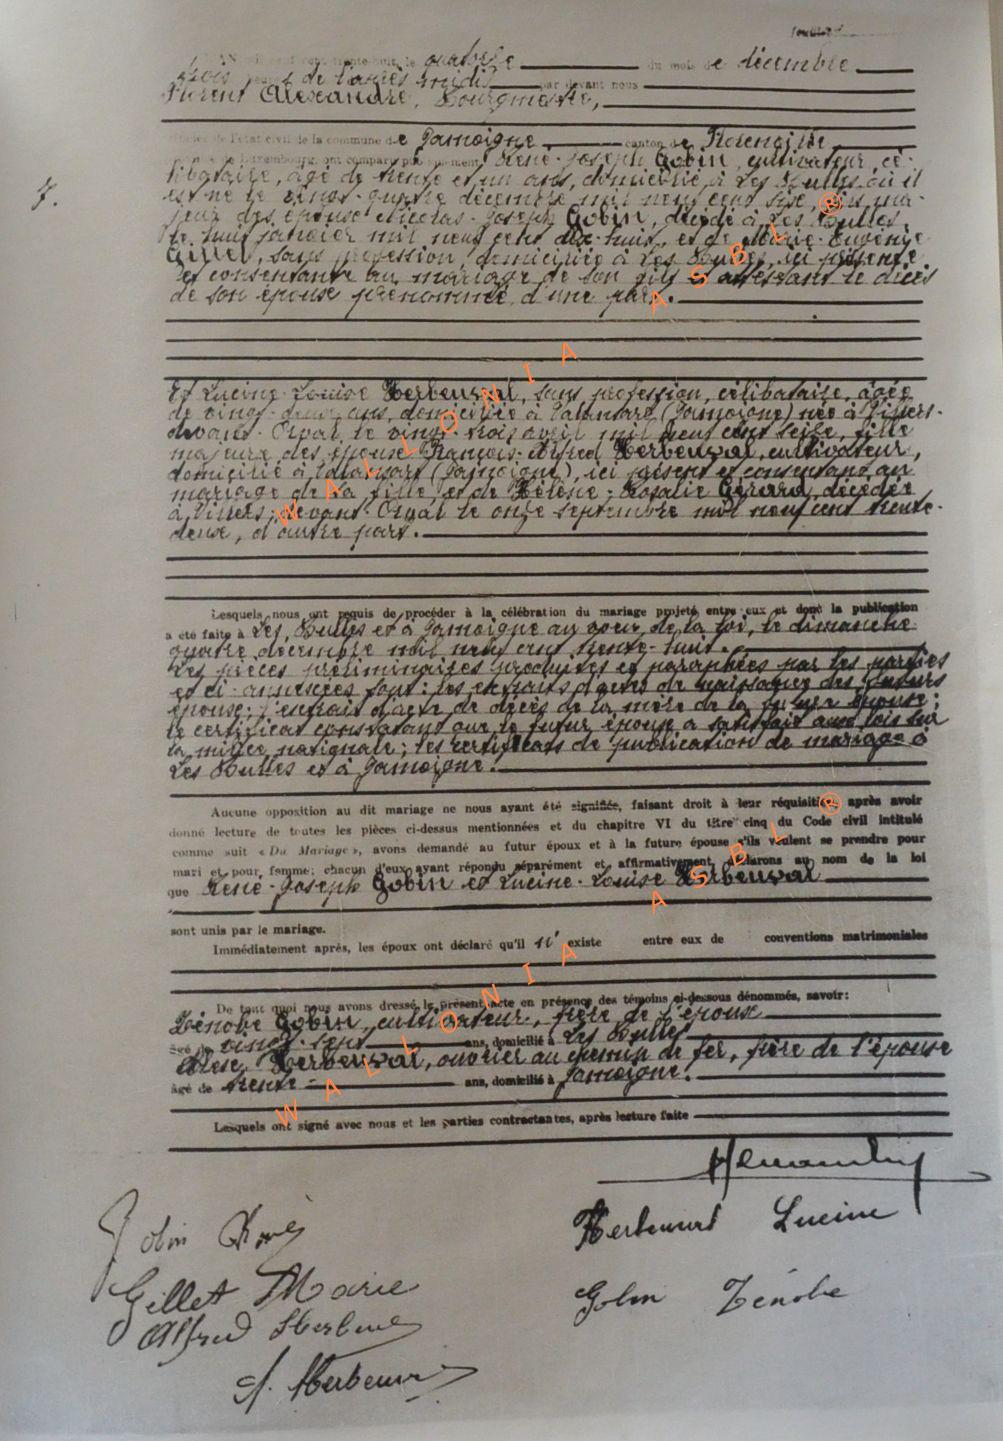 trente-huit, le quatorze du mois de décembre
trois heures de l'après midi par devant nous
Florent Alexandre, Bourgmestre,
officier de l'état civil de la commune de Jamoigne canton de Florenville
de Luxembourg, ont comparu publiquement René-Joseph Gobin, cultivateur, cé-
7.
libataire, âgé de trente et un ans, domicilié à Les Bulles où il
est né le vingt-quatre décembre mil neuf cent six, fils ma-
jeur des époux Nicolas-Joseph Gobin, décédé à Les Bulles,
le huit janvier mil neuf cent dix-huit, et de Marie-Eugénie
Gillet, sans profession, domiciliée à Les Bulles, ici présente
et consentante au mariage de son fils et attestant le décès
de son époux prénommé, d'une part.
Et Lucine-Louise Herbeuval, sans profession, célibataire, âgée
de vingt-deux ans, domiciliée à Valansart (Jamoigne) née à Villers-
devant-Orval, le vingt-trois avril mil neuf cent seize, fille
majeure des époux François-Alfred Herbeuval, cultivateur,
domicilié à Valansart (Jamoigne), ici présent et consentant au
mariage de sa fille, et de Hélène-Rosalie Gérard, décédée
à Villers-devant-Orval le onze septembre mil neuf cent trente-
deux, d'autre part.
Lesquels nous ont requis de procéder à la célébration du mariage projeté entre eux et dont la publication
a été faite à Les Bulles et à Jamoigne au vœu de la loi, le dimanche
quatre décembre mil neuf cent trente-huit.
Les pièces préliminaires produites et paraphées par les parties
et ci-annexées sont: les extraits d'actes de naissance des futurs
époux; l'extrait d'acte de décès de la mère de la future épouse;
le certificat constatant que le futur époux a satisfait aux lois sur
la milice nationale; les certificats de publication de mariage à
Les Bulles et à Jamoigne.
Aucune opposition au dit mariage ne nous ayant été signifiée, faisant droit à leur réquisition, après avoir
donné lecture de toutes les pièces ci-dessus mentionnées et du chapitre VI du titre cinq du Code civil intitulé
comme suit « Du Mariage », avons demandé au futur époux et à la future épouse s'ils veulent se prendre pour
mari et pour femme; chacun d'eux ayant répondu séparément et affirmativement, déclarons au nom de la loi
que René-Joseph Gobin et Lucine-Louise Herbeuval
sont unis par le mariage.
Immédiatement après, les époux ont déclaré qu'il n'existe entre eux de conventions matrimoniales
De tout quoi nous avons dressé le présent acte en présence des témoins ci-dessous dénommés, savoir:
Zénobe Gobin, cultivateur, frère de l'époux
âgé de vingt-sept ans, domicilié à Les Bulles
Herbeuval, ouvrier au chemin de fer, frère de l'épouse
âgé de trente- ans, domicilié à Jamoigne.
Lesquels ont signé avec nous et les parties contractantes, après lecture faite
Gobin René
Herbeuval Lucine
Gillet Marie
Gobin Zénobe
Alfred Herbeuval
A. Herbeuval
WALLONIA ASBL ®
WALLONIA ASBL ®